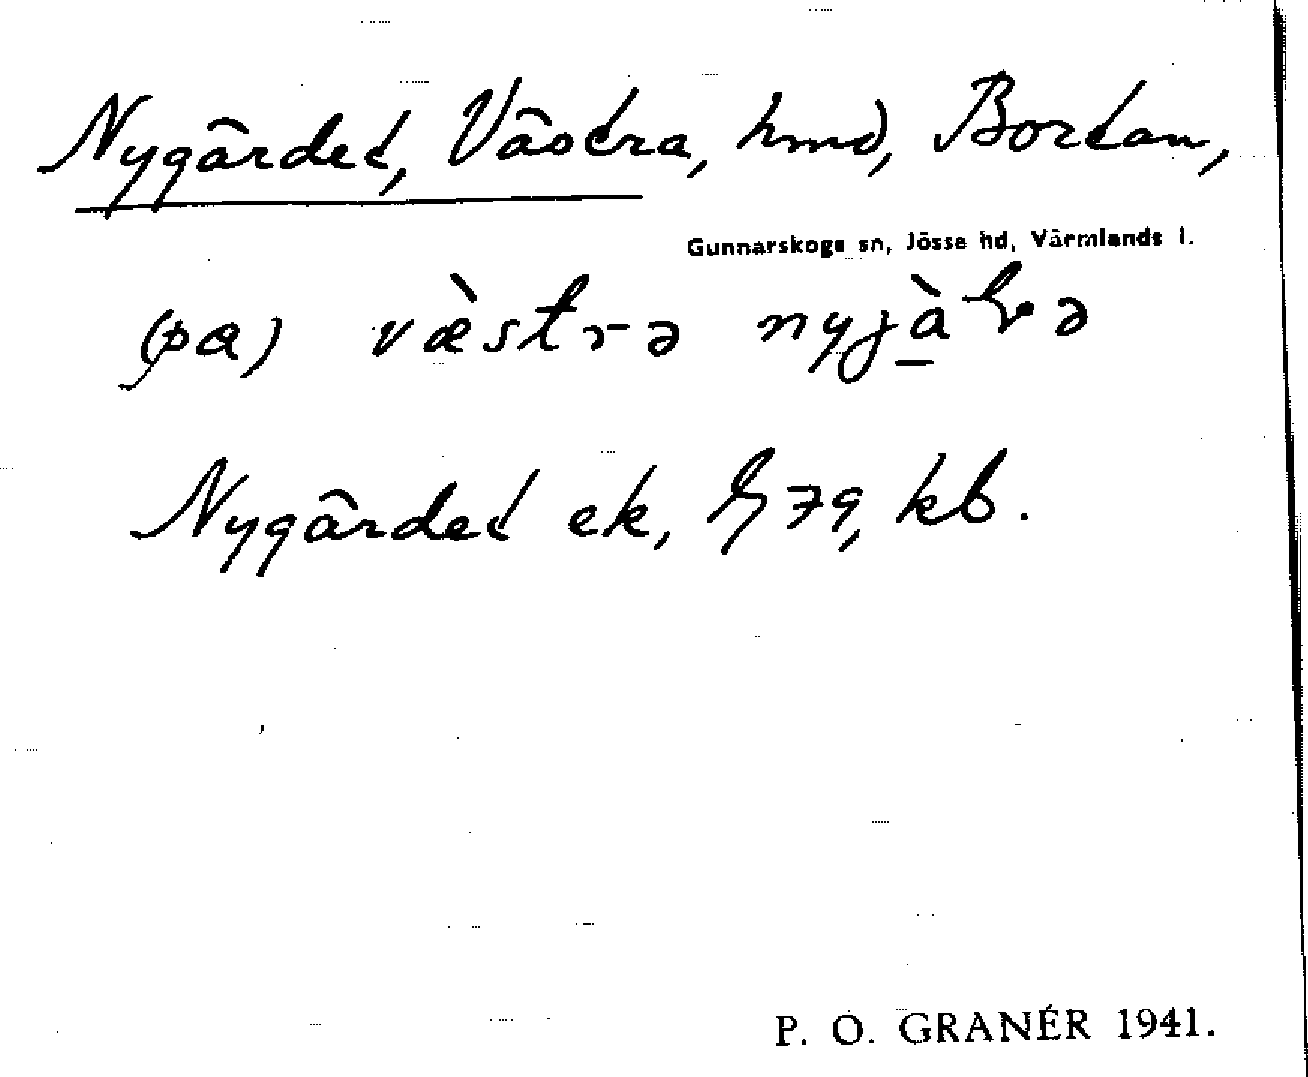 Nygårdet, Västra, hmd, Bortan,
Gunnarskogs sn, Jösse hd, Värmlands l.
(pa) væ̀strə
Nygårdet ek, 79, kb.
P. O. GRANÉR 1941.